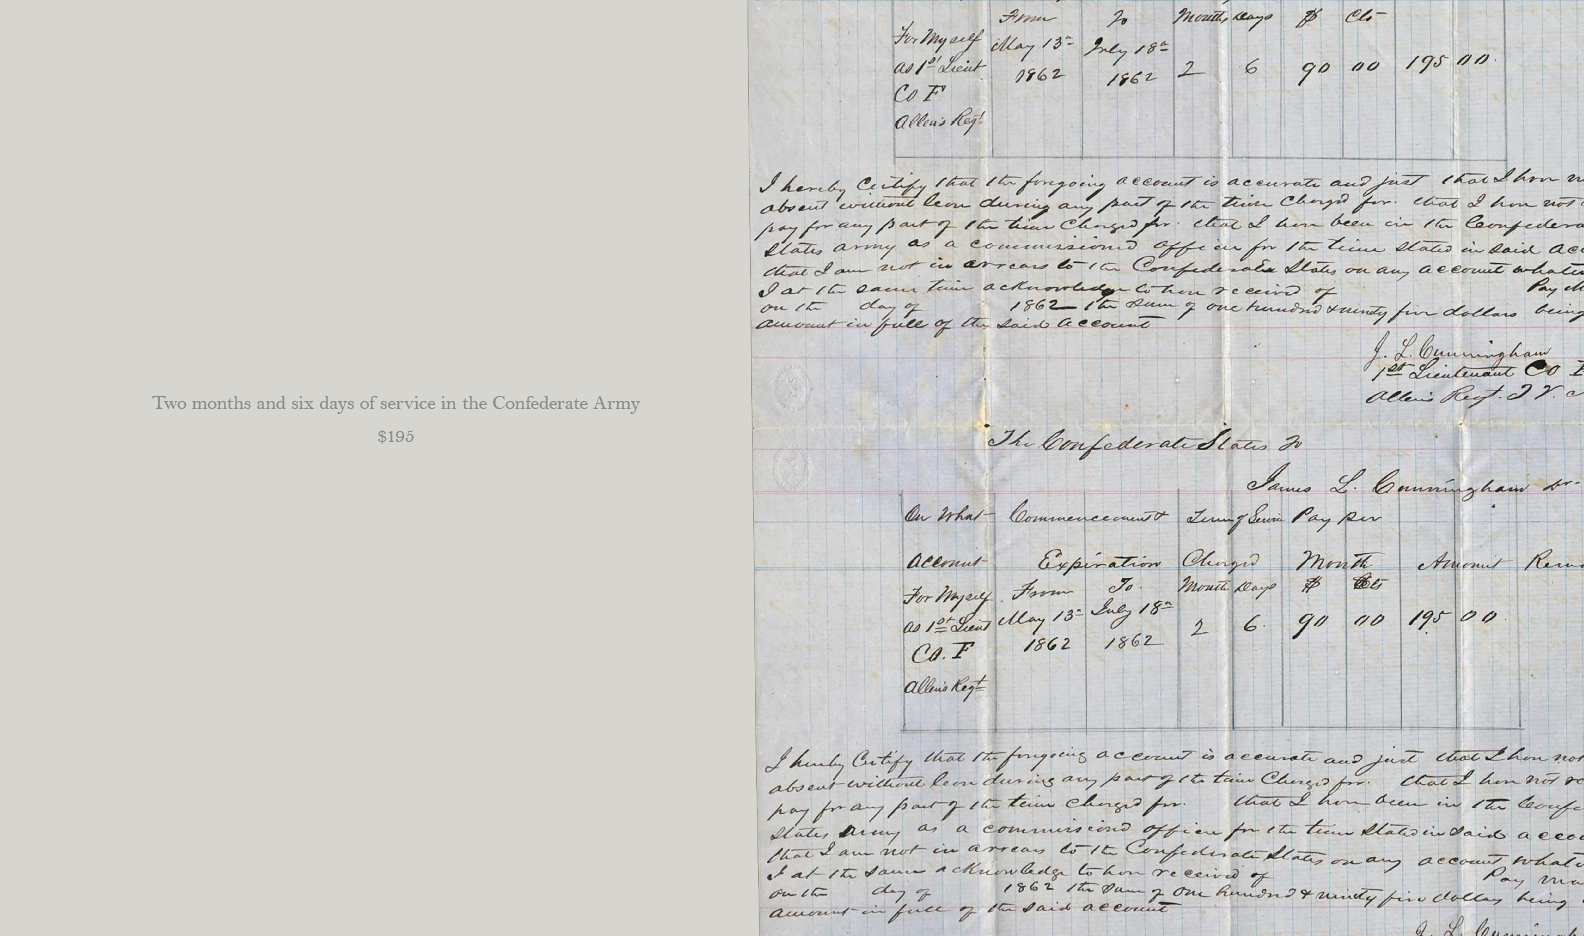 Two months and six days of service in the Confederate Army
$195
From To Months Days $ Cts
For Myself May 13th July 18th
as 1st Lieut 1862 1862 2 6 90 00 195 00
Co F
Allen's Regt
I hereby Certify that the foregoing account is accurate and just that I have
absent without leave during any part of the time Charged for. that I have not
pay for any part of the time Charged for. that I have been in the
States army as a commissioned officer for the time stated in said
that I am not in arrears to the Confederate States on any account
I at the same time acknowledge to have received of Pay
on the day of 1862 the sum of one hundred & ninety five dollars being
amount in full of the said account
J. L. Cunningham
1st Lieutenant Co
Allens Regt. T V.
The Confederate States To
James L. Cunningham Dr.
On What Commencement & Term of Service Pay per
Account Expiration Charged Month Amount
For Myself From To. Month Days $ Cts
as 1st Lieut May 13th July 18th 2 6 90 00 195 00
Co. F 1862 1862
Allens Regt
I hereby Certify that the foregoing account is accurate and just that I have not
absent without leave during any part of the time Charged for. that I have not
pay for any part of the time charged for. that I have been in the
States Army as a commissioned officer for the time Stated in said
that I am not in arrears to the Confederate States on any account
I at the same acknowledge to have received of Pay
on the day of 1862 the sum of One hundred & ninety five dollars being
amount in full of the said account
J. L.